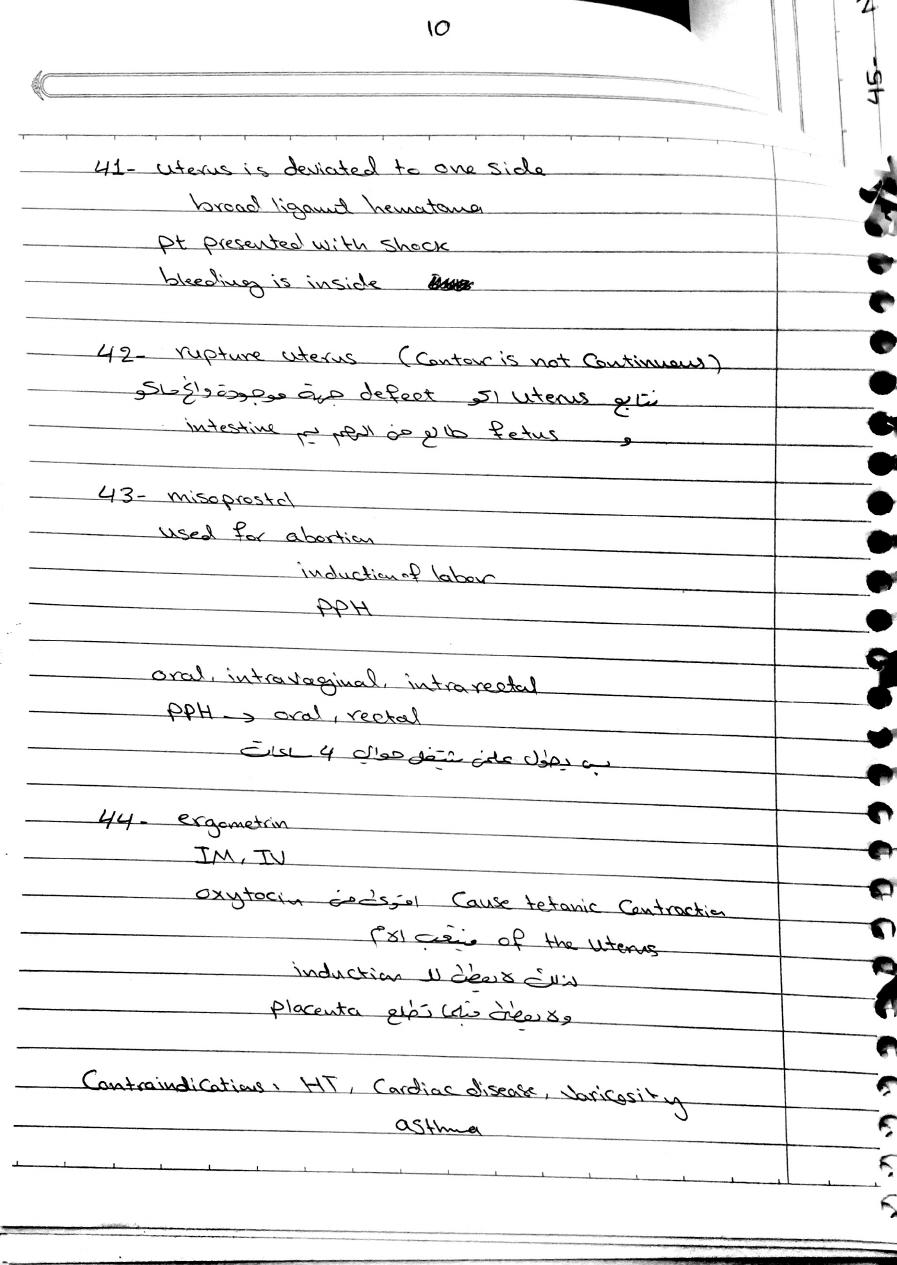 10
45-
41- uterus is deviated to one side
broad ligamt hematoma
pt presented with shock
bleeding is inside
42- rupture uterus (Contour is not Continuous)
نتابع uterus اكو defect جهة موجودة
و fetus طالع من الرحم يم intestine
43- misoprostol
used for abortion
induction of labor
PPH
oral, intravaginal, intrarectal
PPH → oral, rectal
بس يطول علمن يشتغل حوالي 4 ساعات
44- ergometrin
IM, IV
Cause tetanic Contraction اقوى من oxytocin
of the uterus الام
لذلك لا يعطى لل induction
ولا يعطى قبل تطلع placenta
Contraindications: HT, Cardiac disease, Varicosity
asthma